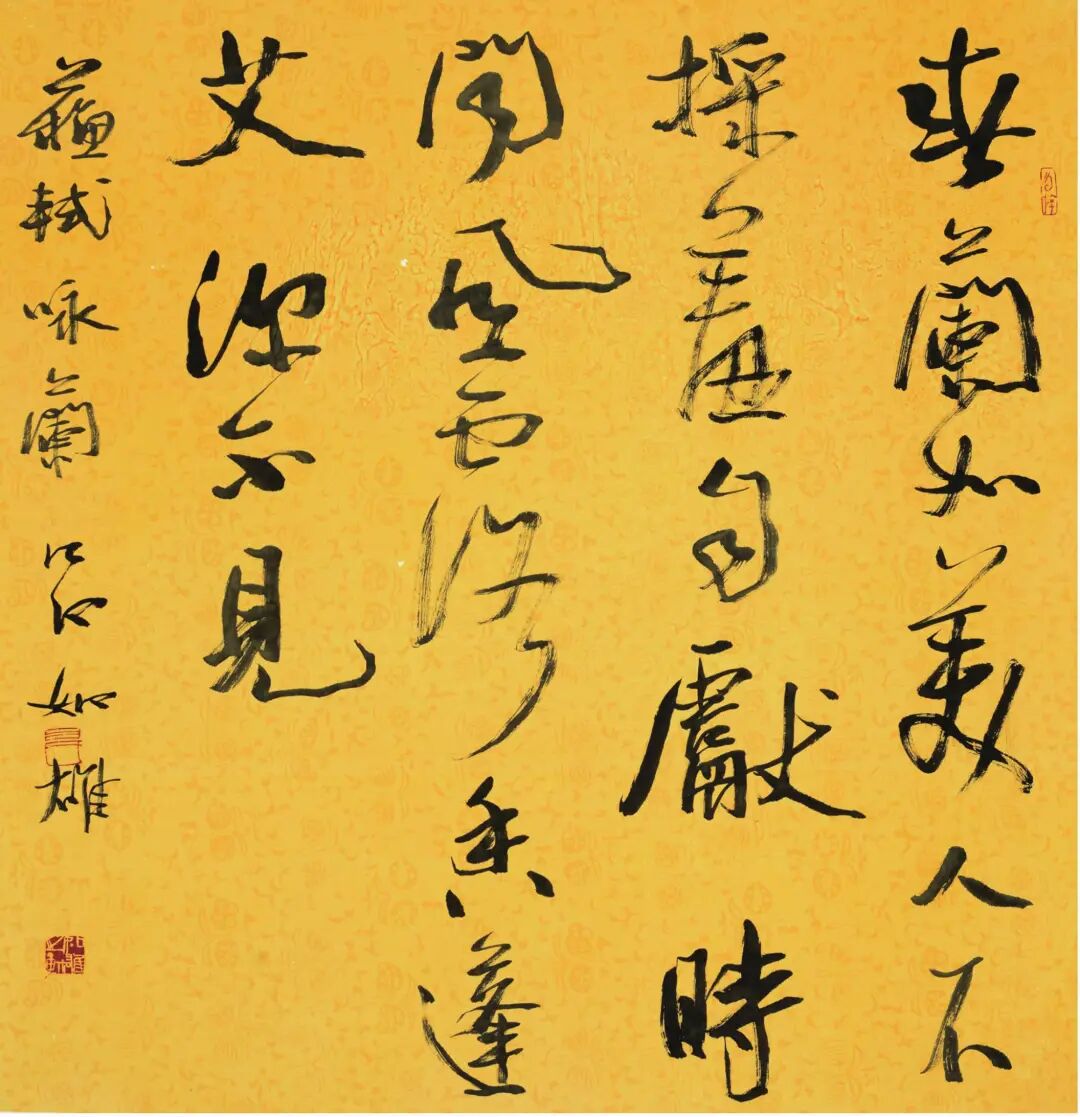 春蘭如美人不
採羞自獻時
聞風露香蓬
艾深不見
蘇軾咏蘭 如雄